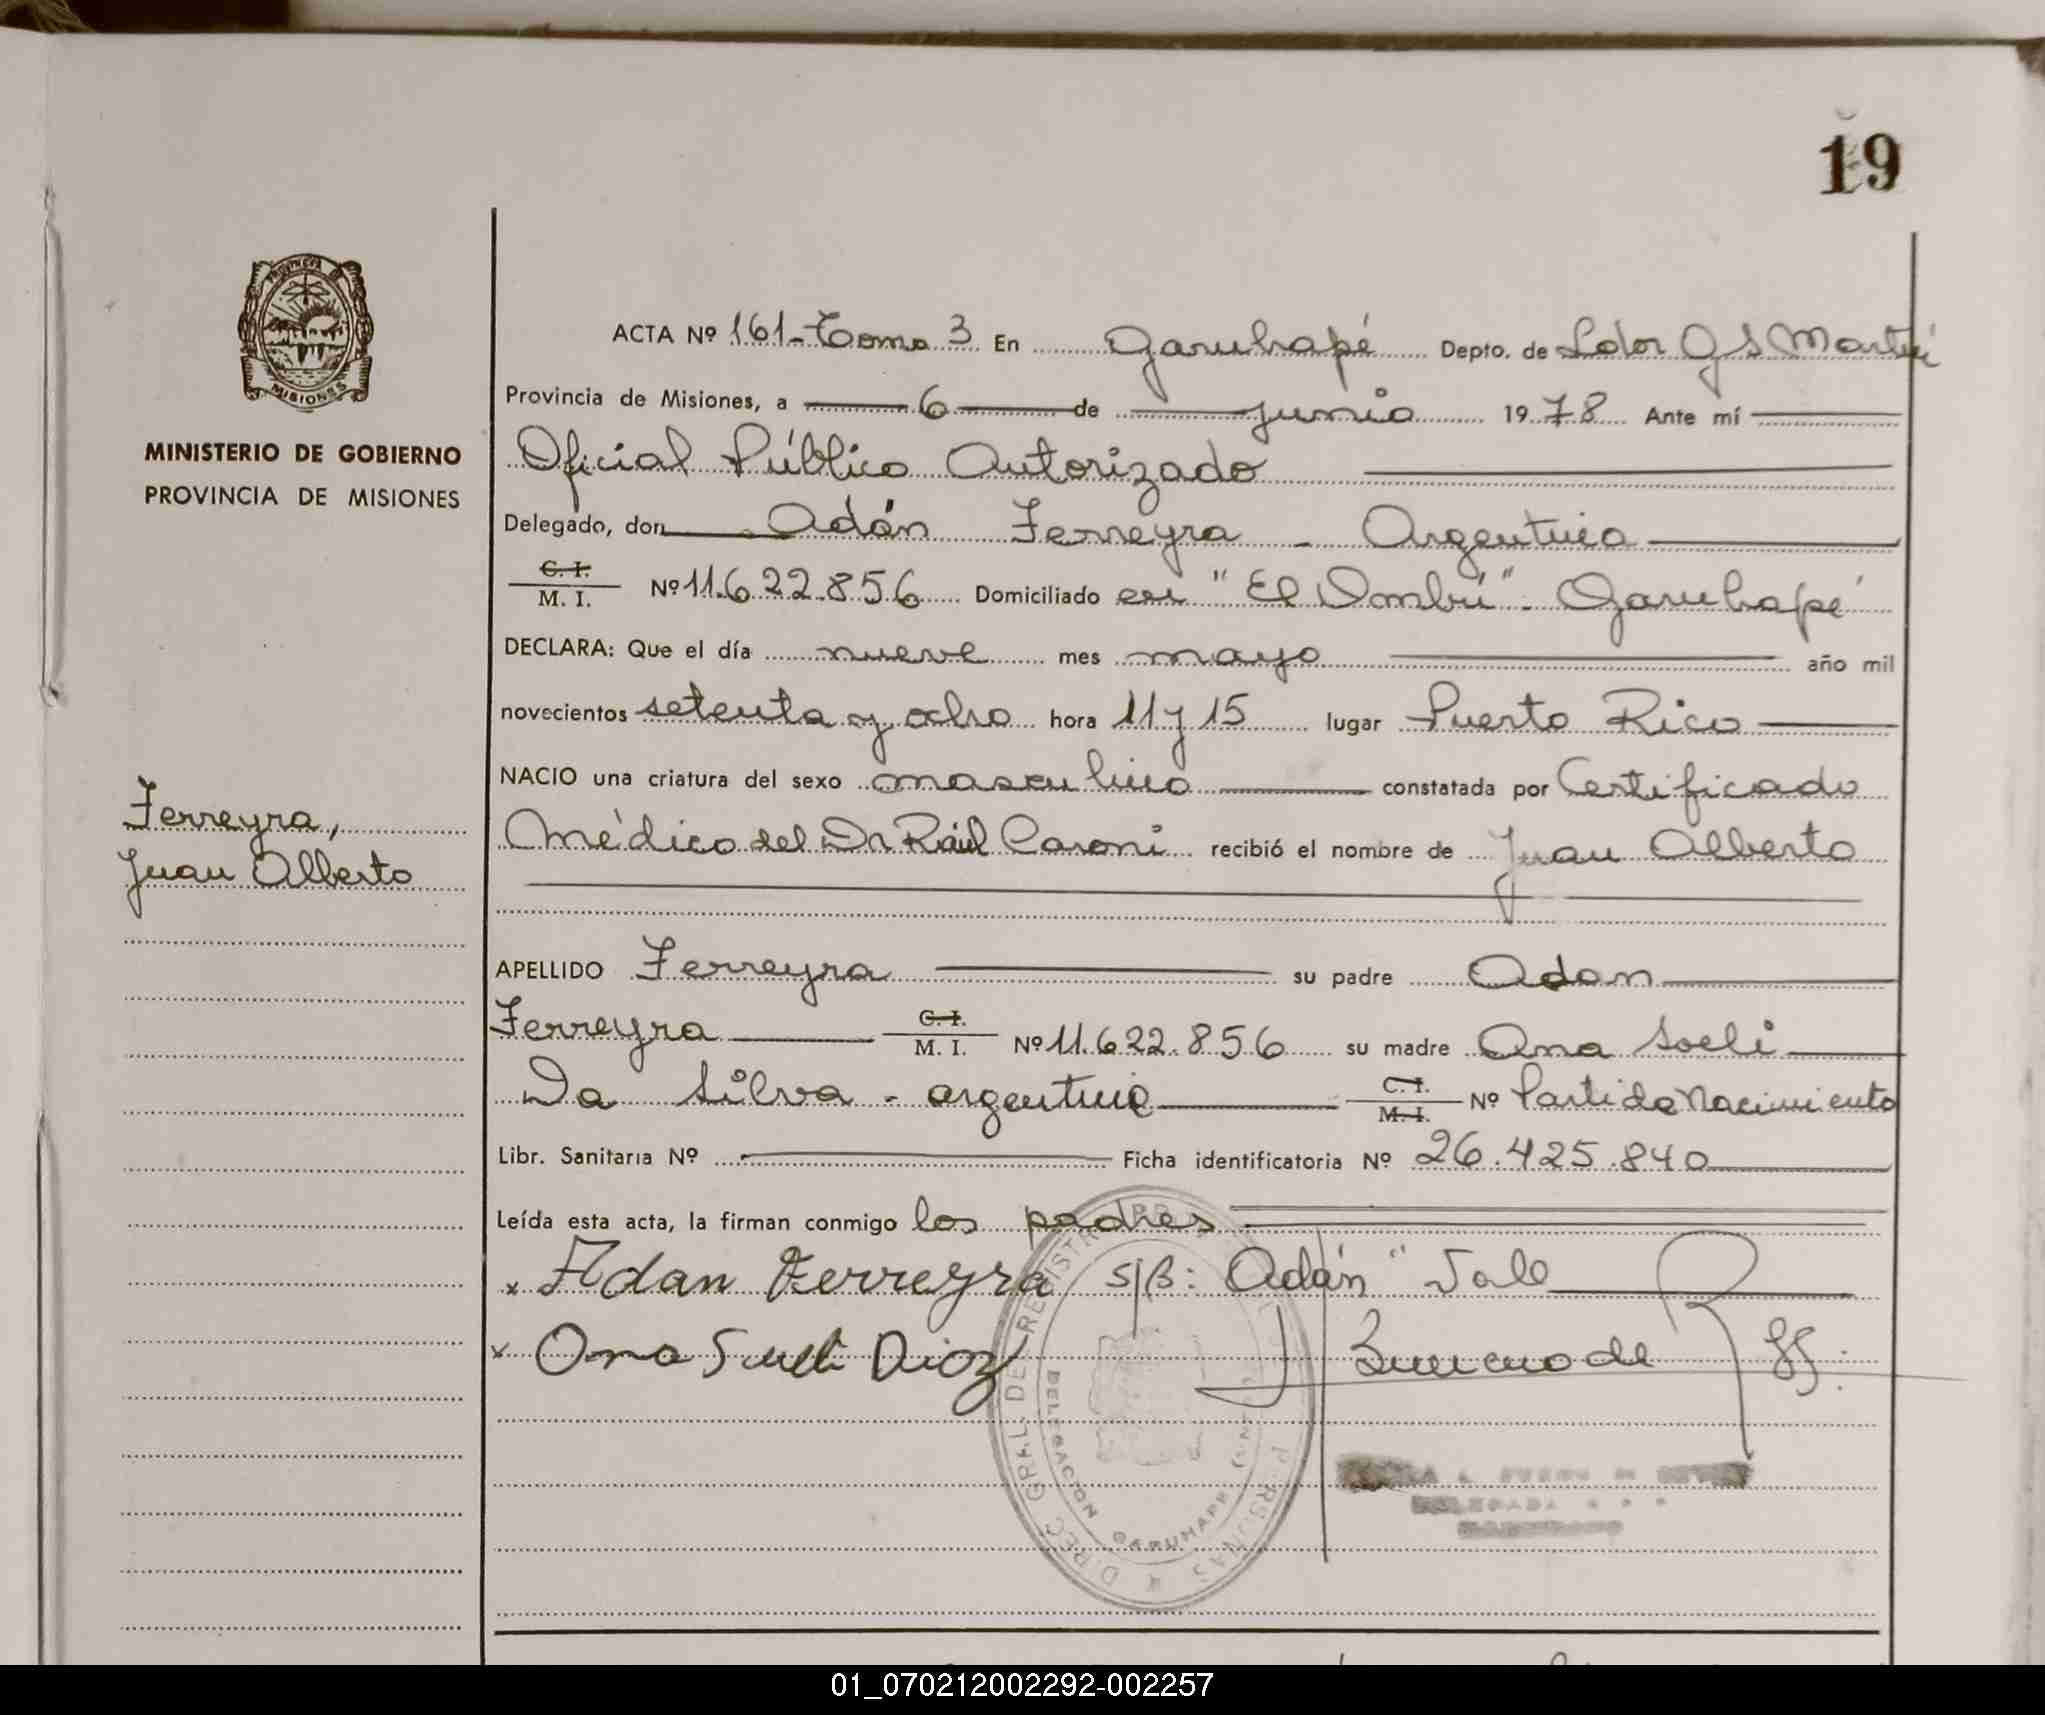 19
ACTA Nº 161-Tomo 3 En Garuhapé Depto. de Ldor G S Martín
Provincia de Misiones, a 6 de junio 1978 Ante mí
Oficial Público Autorizado
Delegado, don Adán Ferreyra - Argentina
C. I. / M. I. Nº 11.622.856 Domiciliado en "El Ombú" - Garuhapé
DECLARA: Que el día nueve mes mayo año mil
novecientos setenta y ocho hora 11 y 15 lugar Puerto Rico
NACIO una criatura del sexo masculino constatada por Certificado
Médico del Dr Raúl Caroni recibió el nombre de Juan Alberto
APELLIDO Ferreyra su padre Adan
Ferreyra C. I. / M. I. Nº 11.622.856 su madre Ana Soeli
Da Silva - argentina C. I. / M. I. Nº Partida Nacimiento
Libr. Sanitaria Nº Ficha identificatoria Nº 26.425.840
Leída esta acta, la firman conmigo los padres
x Adan Ferreyra S/B: Adán" Vale
x Ana
DIREC GRAL DE REGISTR PERSONAS
DELEGACION GARUHAPE
PROVINCIA
MISIONES
MINISTERIO DE GOBIERNO
PROVINCIA DE MISIONES
Ferreyra,
Juan Alberto
01_070212002292-002257